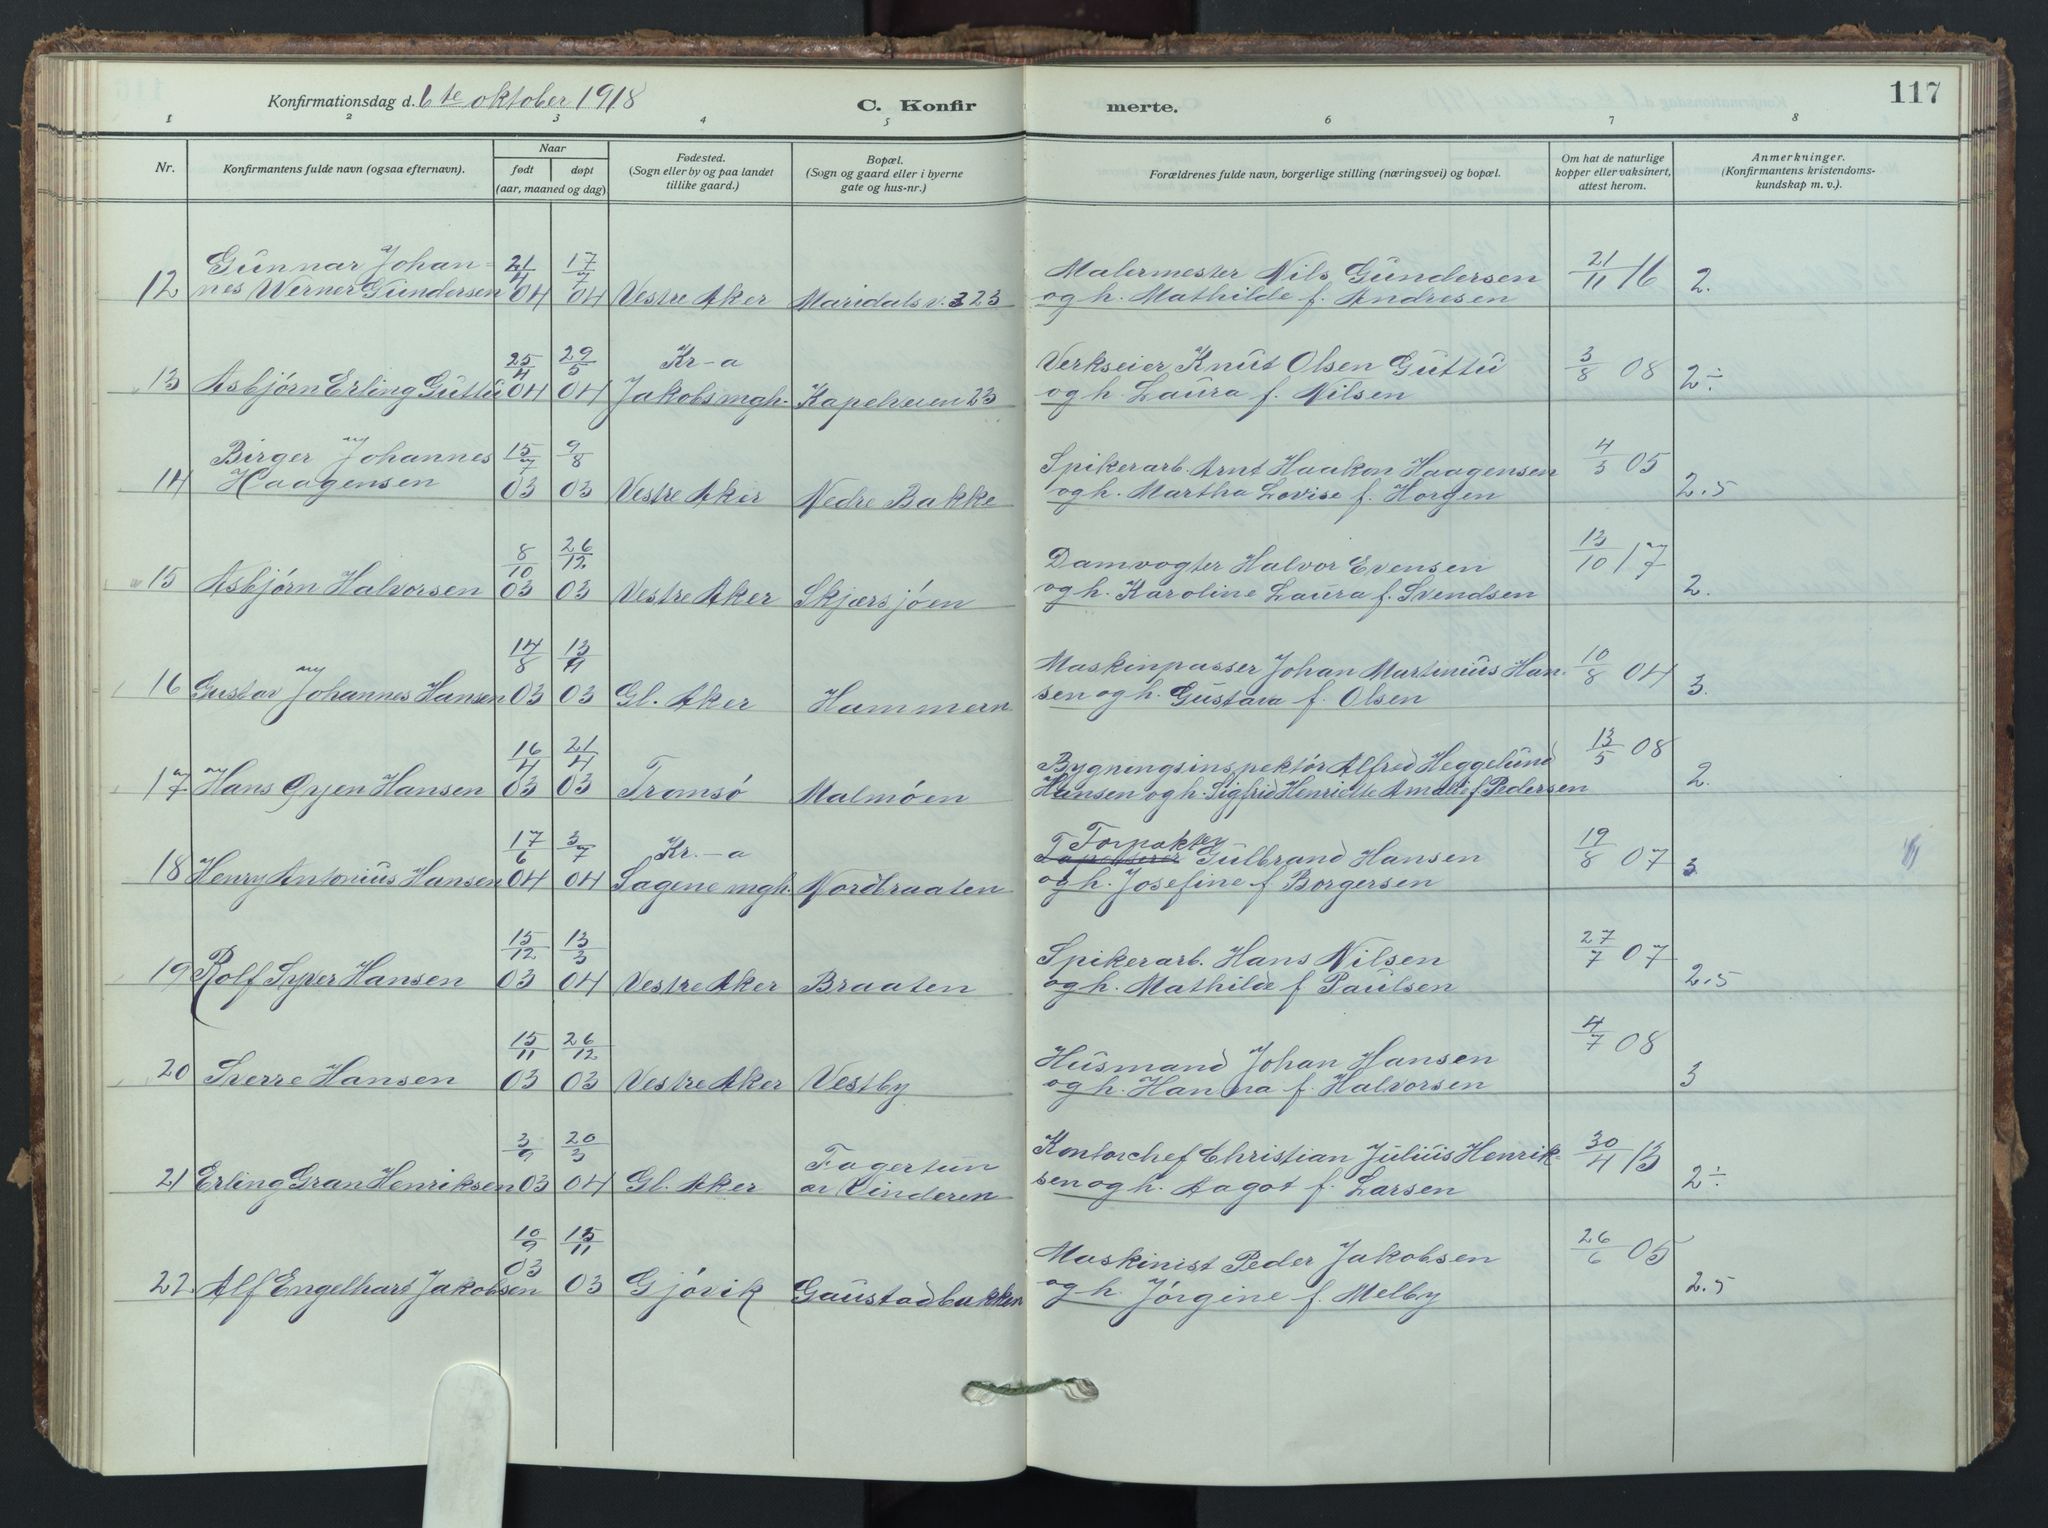 Konfirmationsdag d. 6te oktober 1918 C. Konfir merte. 117
1 2 3 4 5 6 7 8
Nr. Konfirmantens fulde navn (ogsaa efternavn). Naar født døpt (aar, maaned og dag) Fødested. (Sogn eller by og paa landet tillike gaard.) Bopæl. (Sogn og gaard eller i byerne gate og hus-nr.) Forældrenes fulde navn, borgerlige stilling (næringsvei) og bopæl. Om hat de naturlige kopper eller vaksinert, attest herom. Anmerkninger. (Konfirmantens kristendoms- kundskap m. v.).
Gunnar Johan- 21/4 17/7 Malermester Nils Gundersen 21/11 16
12 nes Werner Gundersen 04 04 Vestre Aker Maridalsv. 323 og h. Mathilde f. Andresen 2.
25/4 29/5 Kr-a Verkseier Knut Olsen Guttu 3/8 08
13 Asbjørn Erling Guttu 04 04 Jakobs mgh. Kapelveien 23 og h. Laura f. Nilsen 2÷
Birger Johannes 15/7 9/8 Spikerarb. Arnt Haakon Haagensen 4/3 05
14 Haagensen 03 03 Vestre Aker Nedre Bakke og h. Martha Lovise f. Horgen 2.5
8/10 26/12 Damvogter Halvor Evensen 13/10 17
15 Asbjørn Halvorsen 03 03 Vestre Aker Skjærsjøen og h. Karoline Laura f. Svendsen 2.
14/8 13/9 Maskinpasser Johan Martinius Han- 10/8 04
16 Gustav Johannes Hansen 03 03 Gl. Aker Hammern sen og h. Gustava f. Olsen 3.
16/4 21/4 Bygningsinspektør Alfred Heggelund 13/5 08
17 Hans Gjen Hansen 03 03 Tromsø Malmøen Hansen og h. Sigfrid Henriette Amalie f Pedersen 2.
17/6 3/7 Kr.-a Forpakter Gulbrand Hansen 19/8 07
18 Henry Antonius Hansen 04 04 Sagene mgh. Nordbraaten og h. Josefine f Borgersen 3.
15/12 13/3 Spikerarb. Hans Nilsen 27/7 07
19 Rolf Syver Hansen 03 04 Vestre Aker Braaten og h. Mathilde f Paulsen 2.5
15/11 26/12 Husmand Johan Hansen 4/7 08
20 Sverre Hansen 03 03 Vestre Aker Vestby og h. Hanna f. Halvorsen 3
3/9 20/3 Fagertun Kontorchef Christian Julius Henrik- 30/4 13
21 Erling Gran Henriksen 03 04 Gl. Aker av Vinderen sen og h. Aagot f. Larsen 2÷
10/9 15/11 Maskinist Peder Jakobsen 26/6 05
22. Alf Engelhart Jakobsen 03 03 Gjøvik Gaustadbakken og h. Jørgine f. Melby 2.5